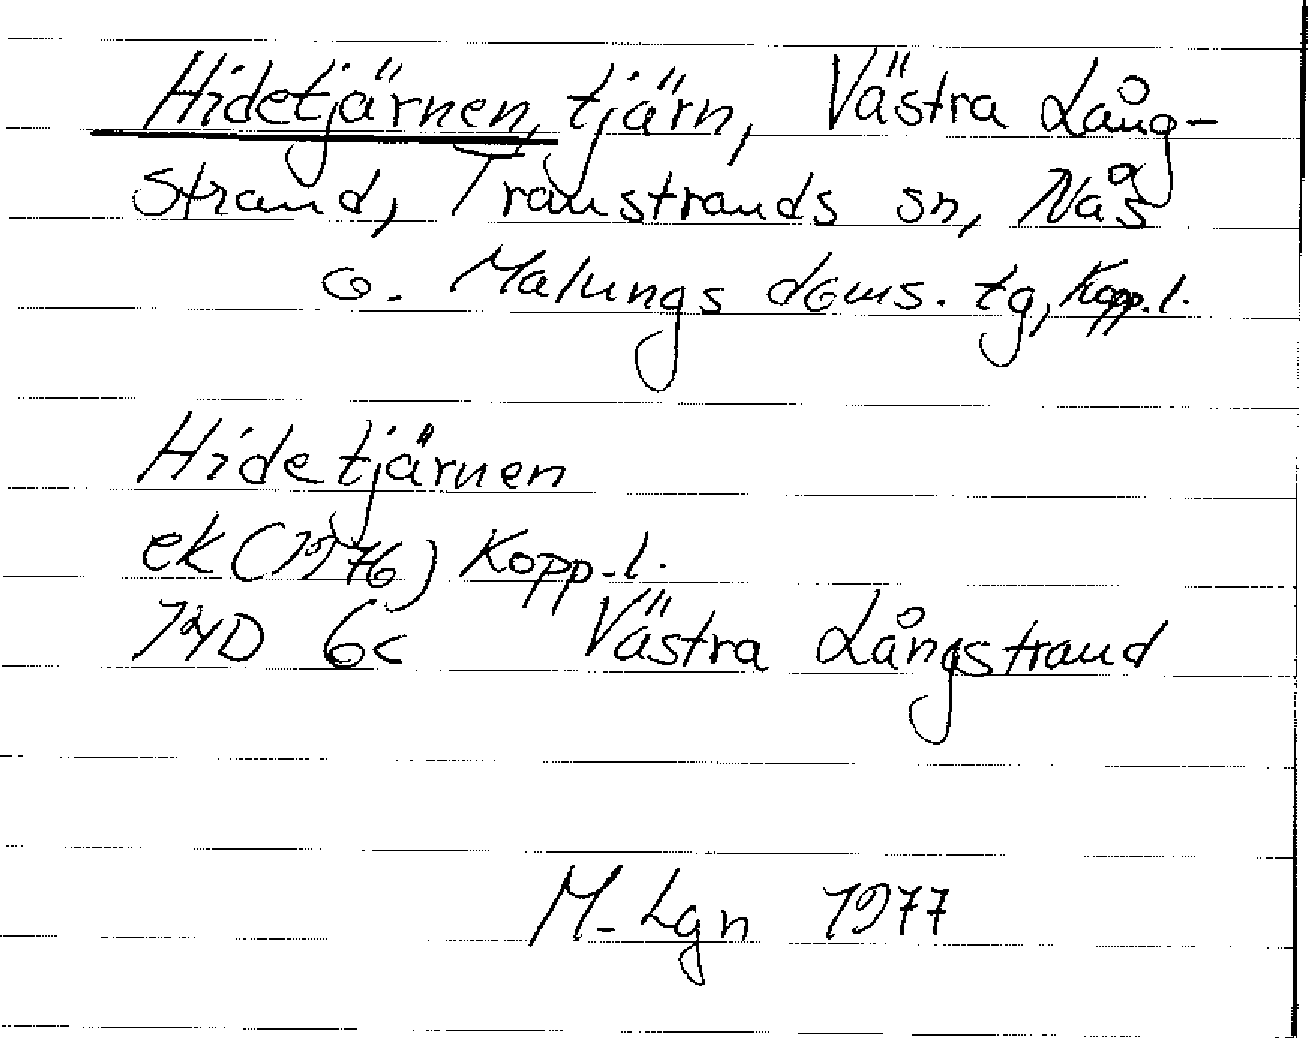 Hidetjärnen, tjärn, Västra Lång-
strand, Transtrands sn, Nås
o. Malungs doms. tg, Kopp. l.
Hidetjärnen
ek (1976) Kopp. l.
14D 6c Västra Långstrand
M. Lgn 1977